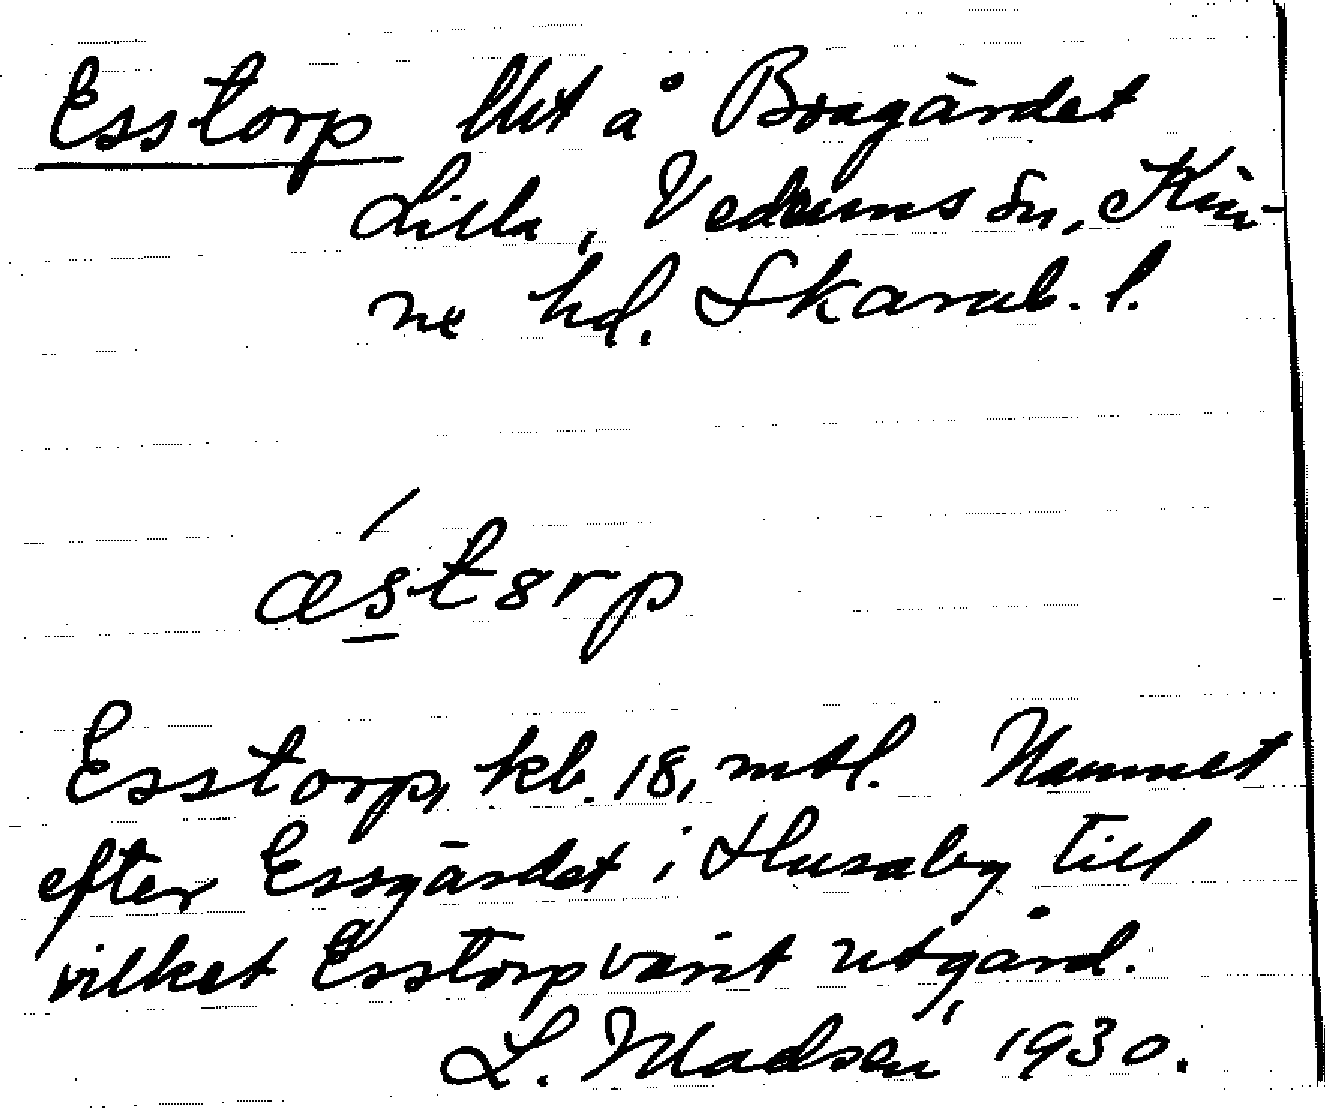 Esstorp lht å Bragärdet
Lilla, Vedums sn, Kin-
ne hd. Skarab. l.
ǽstɜrp
Esstorp, kb. 18, mtl. Namnet
efter Essgärdet i Husaby till
vilket Esstorp varit utgård.
L. Madsén 1930.